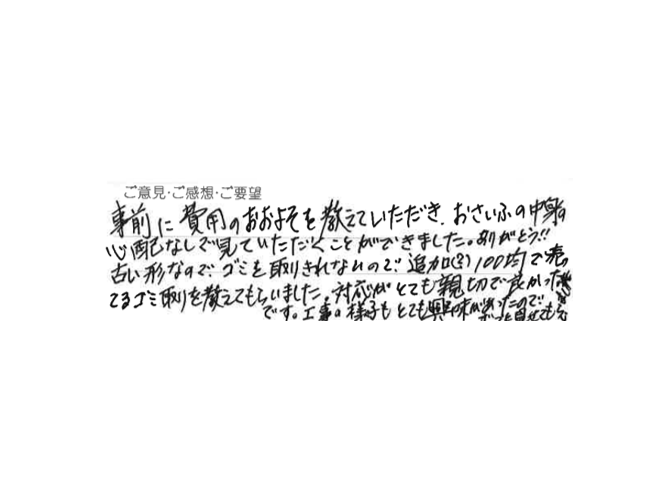 ご意見・ご感想・ご要望
事前に費用のおおよそを教えていただき、おさいふの中身の
心配なしで見ていただくことができました。ありがとう!!
古い形なので、ゴミを取りきれないので、追加 100均で売っ
てるゴミ取りを教えてもらいました。対応がとても親切で良かった
です。工事の様子もとても興味があったので